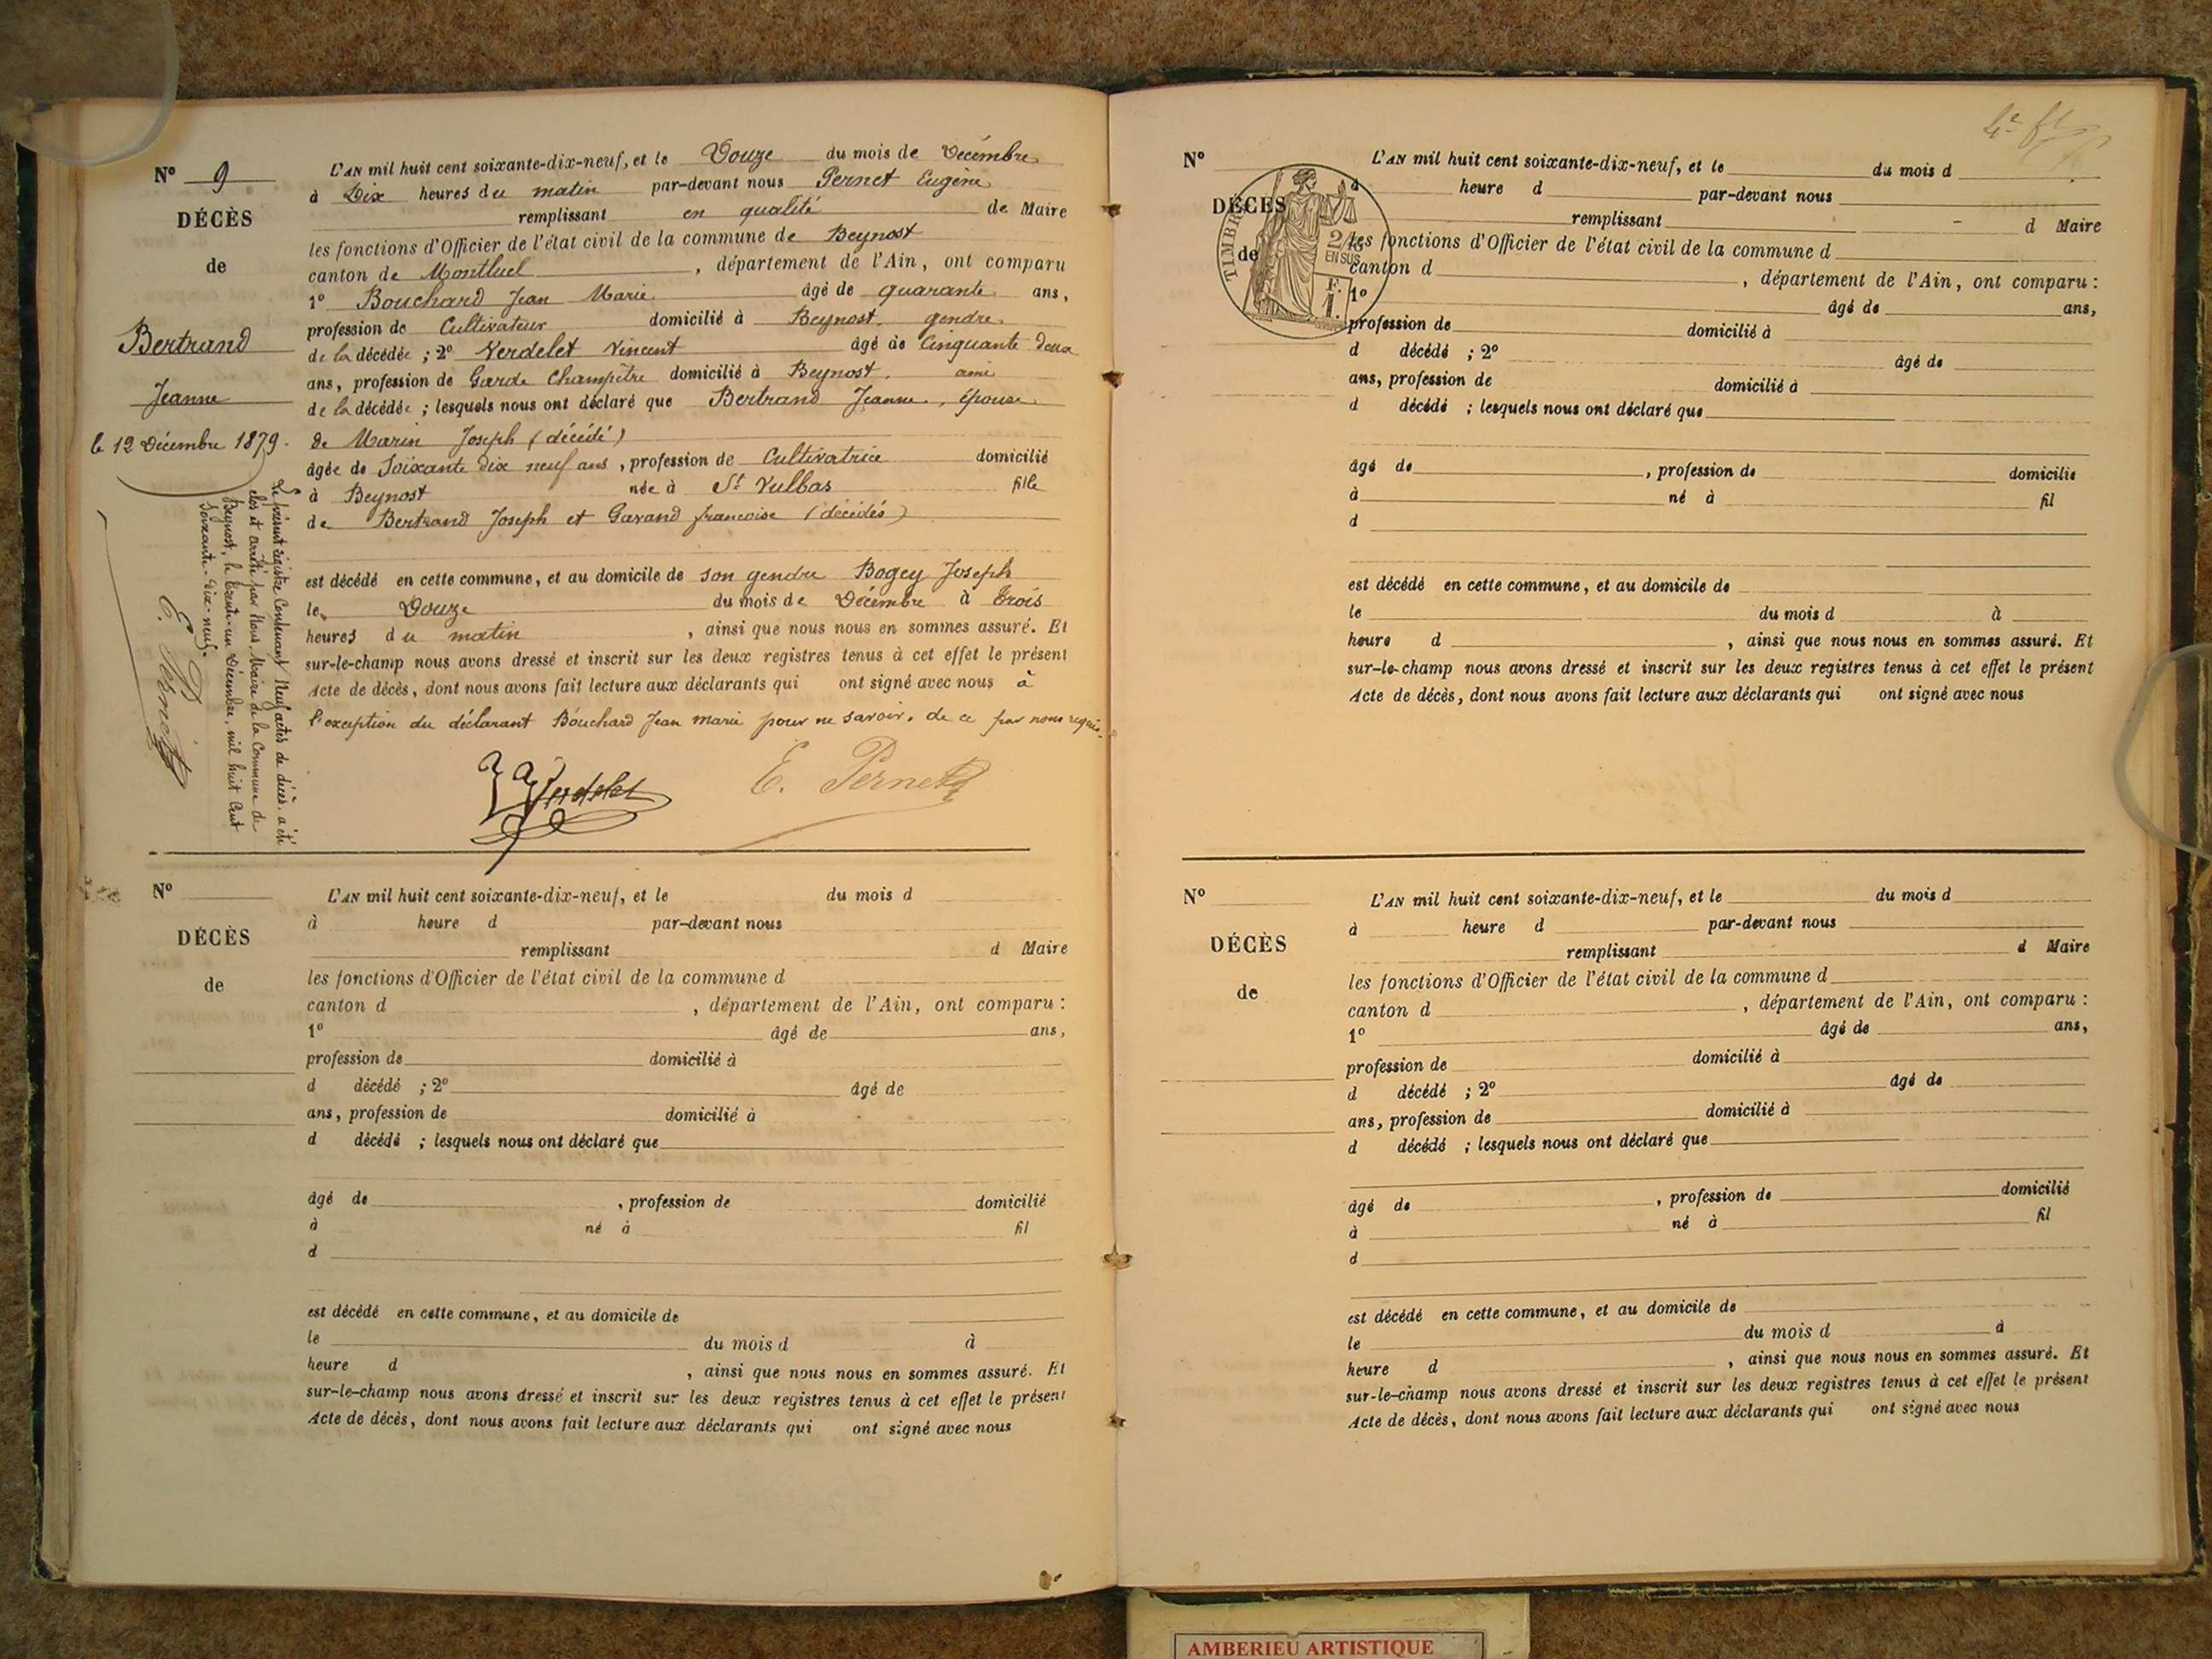 N° 9
DÉCÈS
de
Bertrand
Jeanne
le 12 Décembre 1879.
L'AN mil huit cent soixante-dix-neuf, et le Douze du mois de Décembre
à Dix heures du matin par-devant nous Pernet Eugène
remplissant en qualité de Maire
les fonctions d'Officier de l'état civil de la commune de Beynost
canton de Montluel, département de l'Ain, ont comparu
1° Bouchard Jean Marie âgé de quarante ans,
profession de Cultivateur domicilié à Beynost, gendre
de la décédée ; 2° Verdelet Vincent âgé de Cinquante deux
ans, profession de Garde Champêtre domicilié à Beynost, ami
de la décédée ; lesquels nous ont déclaré que Bertrand Jeanne, épouse
de Marin Joseph (décédé)
âgée de Soixante dix neuf ans, profession de Cultivatrice domicilié
à Beynost née à St Vulbas fille
de Bertrand Joseph et Gavand françoise (décédés)
est décédé en cette commune, et au domicile de son gendre Bogey Joseph
le Douze du mois de Décembre à trois
heures du matin, ainsi que nous nous en sommes assuré. Et
sur-le-champ nous avons dressé et inscrit sur les deux registres tenus à cet effet le présent
Acte de décès, dont nous avons fait lecture aux déclarants qui ont signé avec nous à
l'exception du déclarant Bouchard Jean marie pour ne savoir, de ce par nous requis.
Verdelet E. Pernet
Le présent registre Contenant Neuf actes de décès, a été
clos et arrêté par Nous, Maire de la Commune de
Beynost, le trente-un Décembre, mil huit Cent
Soixante-Dix-neuf.
E. Pernet
N°
DÉCÈS
de
L'AN mil huit cent soixante-dix-neuf, et le du mois d
à heure d par-devant nous
remplissant d Maire
les fonctions d'Officier de l'état civil de la commune d
canton d , département de l'Ain, ont comparu :
1° âgé de ans,
profession de domicilié à
d décédé ; 2° âgé de
ans, profession de domicilié à
d décédé ; lesquels nous ont déclaré que
âgé de , profession de domicilié
à né à fil
d
est décédé en cette commune, et au domicile de
le du mois d à
heure d , ainsi que nous nous en sommes assuré. Et
sur-le-champ nous avons dressé et inscrit sur les deux registres tenus à cet effet le présent
Acte de décès, dont nous avons fait lecture aux déclarants qui ont signé avec nous
N°
DÉCÈS
de
TIMBRE
2/10
EN SUS
F.
1.
L'AN mil huit cent soixante-dix-neuf, et le du mois d
à heure d par-devant nous
remplissant d Maire
les fonctions d'Officier de l'état civil de la commune d
canton d , département de l'Ain, ont comparu :
1° âgé de ans,
profession de domicilié à
d décédé ; 2° âgé de
ans, profession de domicilié à
d décédé ; lesquels nous ont déclaré que
âgé de , profession de domicilié
à né à fil
d
est décédé en cette commune, et au domicile de
le du mois d à
heure d , ainsi que nous nous en sommes assuré. Et
sur-le-champ nous avons dressé et inscrit sur les deux registres tenus à cet effet le présent
Acte de décès, dont nous avons fait lecture aux déclarants qui ont signé avec nous
N°
DÉCÈS
de
L'AN mil huit cent soixante-dix-neuf, et le du mois d
à heure d par-devant nous
remplissant d Maire
les fonctions d'Officier de l'état civil de la commune d
canton d , département de l'Ain, ont comparu :
1° âgé de ans,
profession de domicilié à
d décédé ; 2° âgé de
ans, profession de domicilié à
d décédé ; lesquels nous ont déclaré que
âgé de , profession de domicilié
à né à fil
d
est décédé en cette commune, et au domicile de
le du mois d à
heure d , ainsi que nous nous en sommes assuré. Et
sur-le-champ nous avons dressé et inscrit sur les deux registres tenus à cet effet le présent
Acte de décès, dont nous avons fait lecture aux déclarants qui ont signé avec nous
AMBERIEU ARTISTIQUE